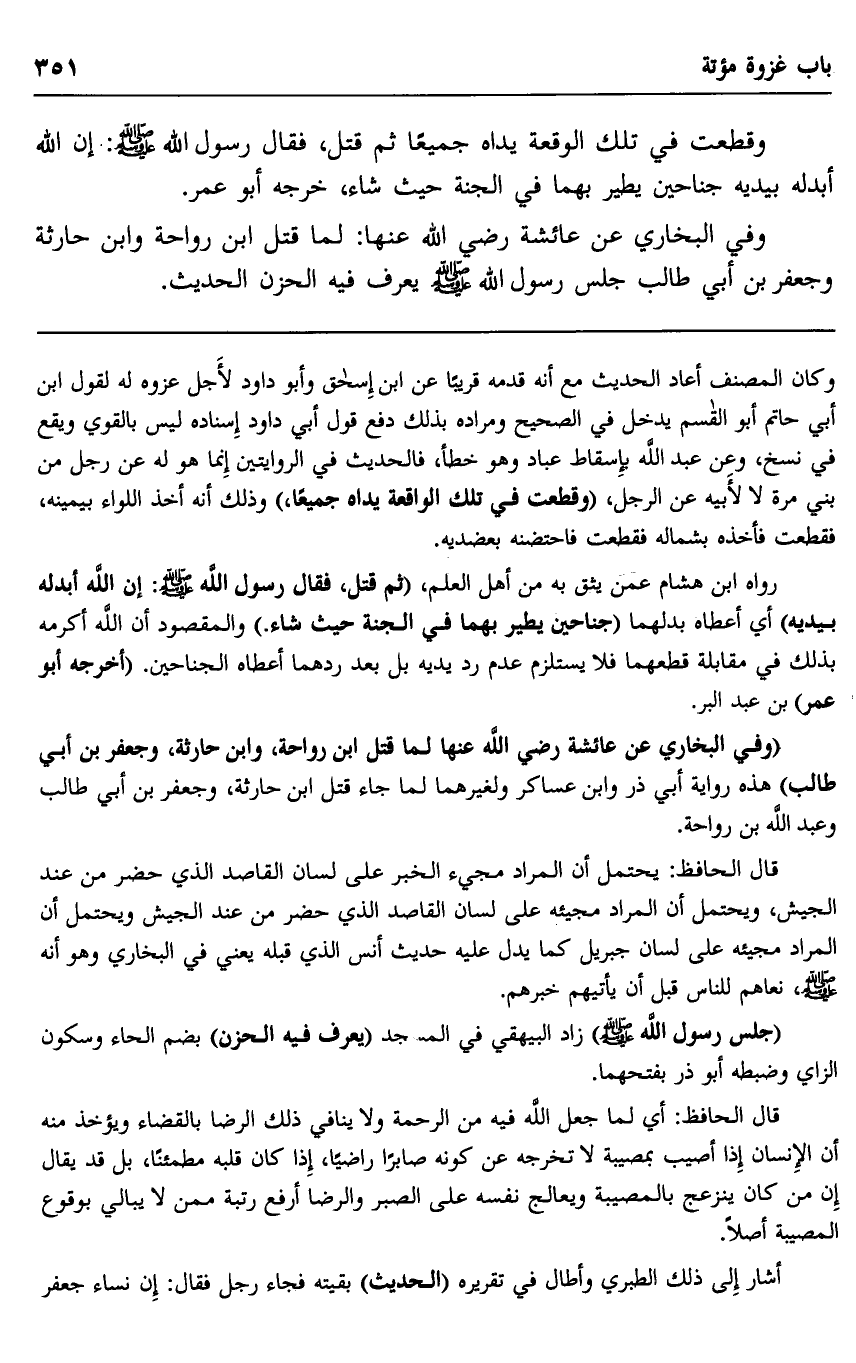 باب غزوة مؤتة ٣٥١
وقطعت في تلك الوقعة يداه جميعًا ثم قتل، فقال رسول الله ﷺ: إن الله
أبدله بيديه جناحين يطير بهما في الجنة حيث شاء، خرجه أبو عمر.
وفي البخاري عن عائشة رضي الله عنها: لما قتل ابن رواحة وابن حارثة
وجعفر بن أبي طالب جلس رسول الله ﷺ يعرف فيه الحزن الحديث.
وكان المصنف أعاد الحديث مع أنه قدمه قريبًا عن ابن إسحٰق وأبو داود لأَجل عزوه له لقول ابن
أبي حاتم أبو القٰسم يدخل في الصحيح ومراده بذلك دفع قول أبي داود إسناده ليس بالقوي ويقع
في نسخ، وعن عبد اللَّه بإسقاط عباد وهو خطأ، فالحديث في الروايتين إنما هو له عن رجل من
بني مرة لا لأَبيه عن الرجل، (وقطعت في تلك الواقعة يداه جميعًا،) وذلك أنه أخذ اللواء بيمينه،
فقطعت فأخذه بشماله فقطعت فاحتضنه بعضديه.
رواه ابن هشام عمن يثق به من أهل العلم، (ثم قتل، فقال رسول اللَّه ﷺ: إن اللَّه أبدله
بيديه) أي أعطاه بدلهما (جناحين يطير بهما في الجنة حيث شاء.) والمقصود أن اللَّه أكرمه
بذلك في مقابلة قطعهما فلا يستلزم عدم رد يديه بل بعد ردهما أعطاه الجناحين. (أخرجه أبو
عمر) بن عبد البر.
(وفي البخاري عن عائشة رضي اللَّه عنها لما قتل ابن رواحة، وابن حارثة، وجعفر بن أبي
طالب) هذه رواية أبي ذر وابن عساكر ولغيرهما لما جاء قتل ابن حارثة، وجعفر بن أبي طالب
وعبد اللَّه بن رواحة.
قال الحافظ: يحتمل أن المراد مجيء الخبر على لسان القاصد الذي حضر من عند
الجيش، ويحتمل أن المراد مجيئه على لسان القاصد الذي حضر من عند الجيش ويحتمل أن
المراد مجيئه على لسان جبريل كما يدل عليه حديث أنس الذي قبله يعني في البخاري وهو أنه
ﷺ، نعاهم للناس قبل أن يأتيهم خبرهم.
(جلس رسول اللَّه ﷺ) زاد البيهقي في المسجد (يعرف فيه الحزن) بضم الحاء وسكون
الزاي وضبطه أبو ذر بفتحهما.
قال الحافظ: أي لما جعل اللَّه فيه من الرحمة ولا ينافي ذلك الرضا بالقضاء ويؤخذ منه
أن الإنسان إذا أصيب بمصيبة لا تخرجه عن كونه صابرًا راضيًا، إذا كان قلبه مطمئنًا، بل قد يقال
إن من كان ينزعج بالمصيبة ويعالج نفسه على الصبر والرضا أرفع رتبة ممن لا يبالي بوقوع
المصيبة أصلاً.
أشار إلى ذلك الطبري وأطال في تقريره (الحديث) بقيته فجاء رجل فقال: إن نساء جعفر